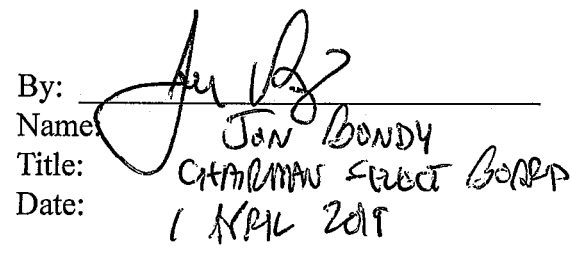 By:
Name: JON BONDY
Title: CHAIRMAN SELECT BOARD
Date: 1 APRIL 2019